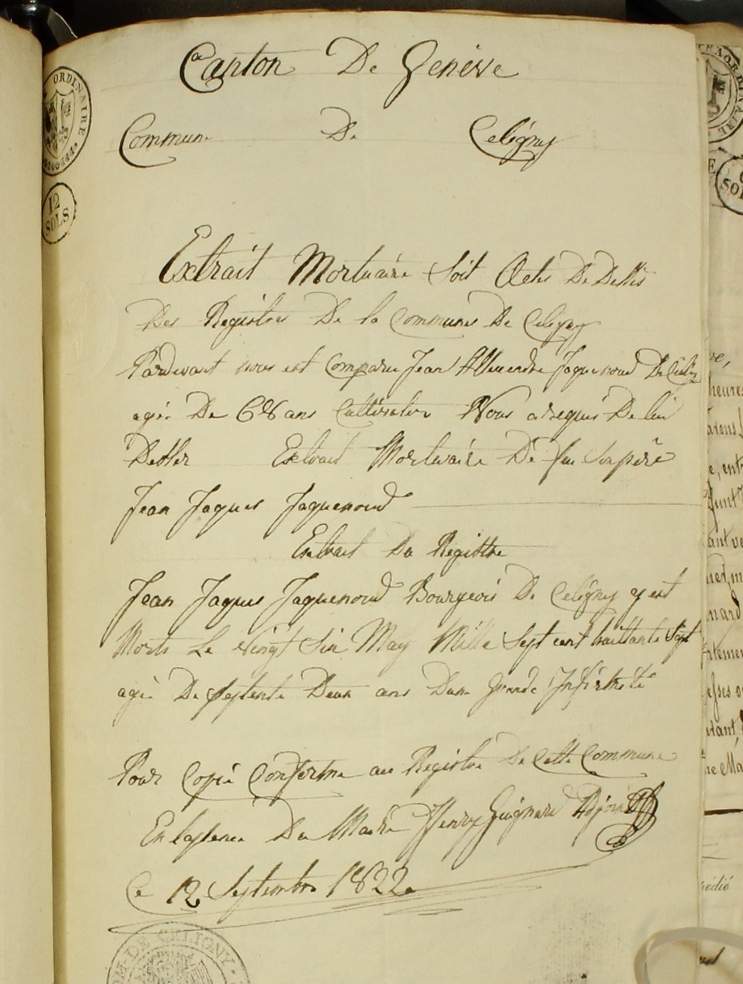 Canton De Genéve
Commune De Celigny
Extrait Mortuaire Soit Acte De Déces
Des Registres De la Commune De Celigny
Pardevant nous est Comparu Jean Alexendre Jaquenoud De Céligny
agée De 68 ans Cultivateur Nous a requis De lui
Extrait Mortuaire De feu son père
Jean Jaques Jaquenoud
Extrait Du Registre
Jean Jaques Jaquenoud Bourgeois De Celigny est
Morts Le Vingt Six May Mille Sept cent huittante Sept
agée De Septente Deux ans Dune grande Infirmité
Pour Copie Conforme au Registre De Cette Commune
En Du Maire Henry Guignard Adjoint
Ce 12 Septembre 1822
ORDINAIRE
12
SOLS
COM. DE CELIGNY